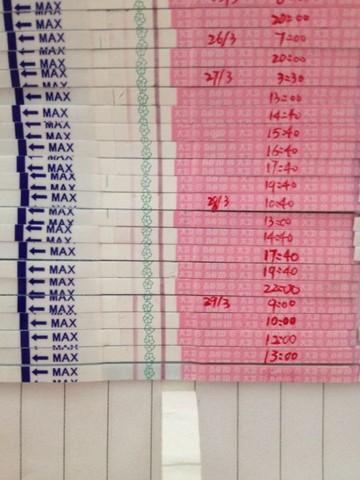 MAX
MAX 20:00
MAX 26/3 7:00
MAX 20:00
MAX 27/3 3:30
MAX 13:00
MAX 14:40
MAX 15:40
MAX 16:40
MAX 17:40
MAX 19:40
MAX 28/3 10:40
MAX 13:00
MAX 14:40
MAX 17:40
MAX 19:40
MAX 22:00
MAX 29/3 9:00
MAX 10:00
MAX 12:00
MAX 13:00
MAX